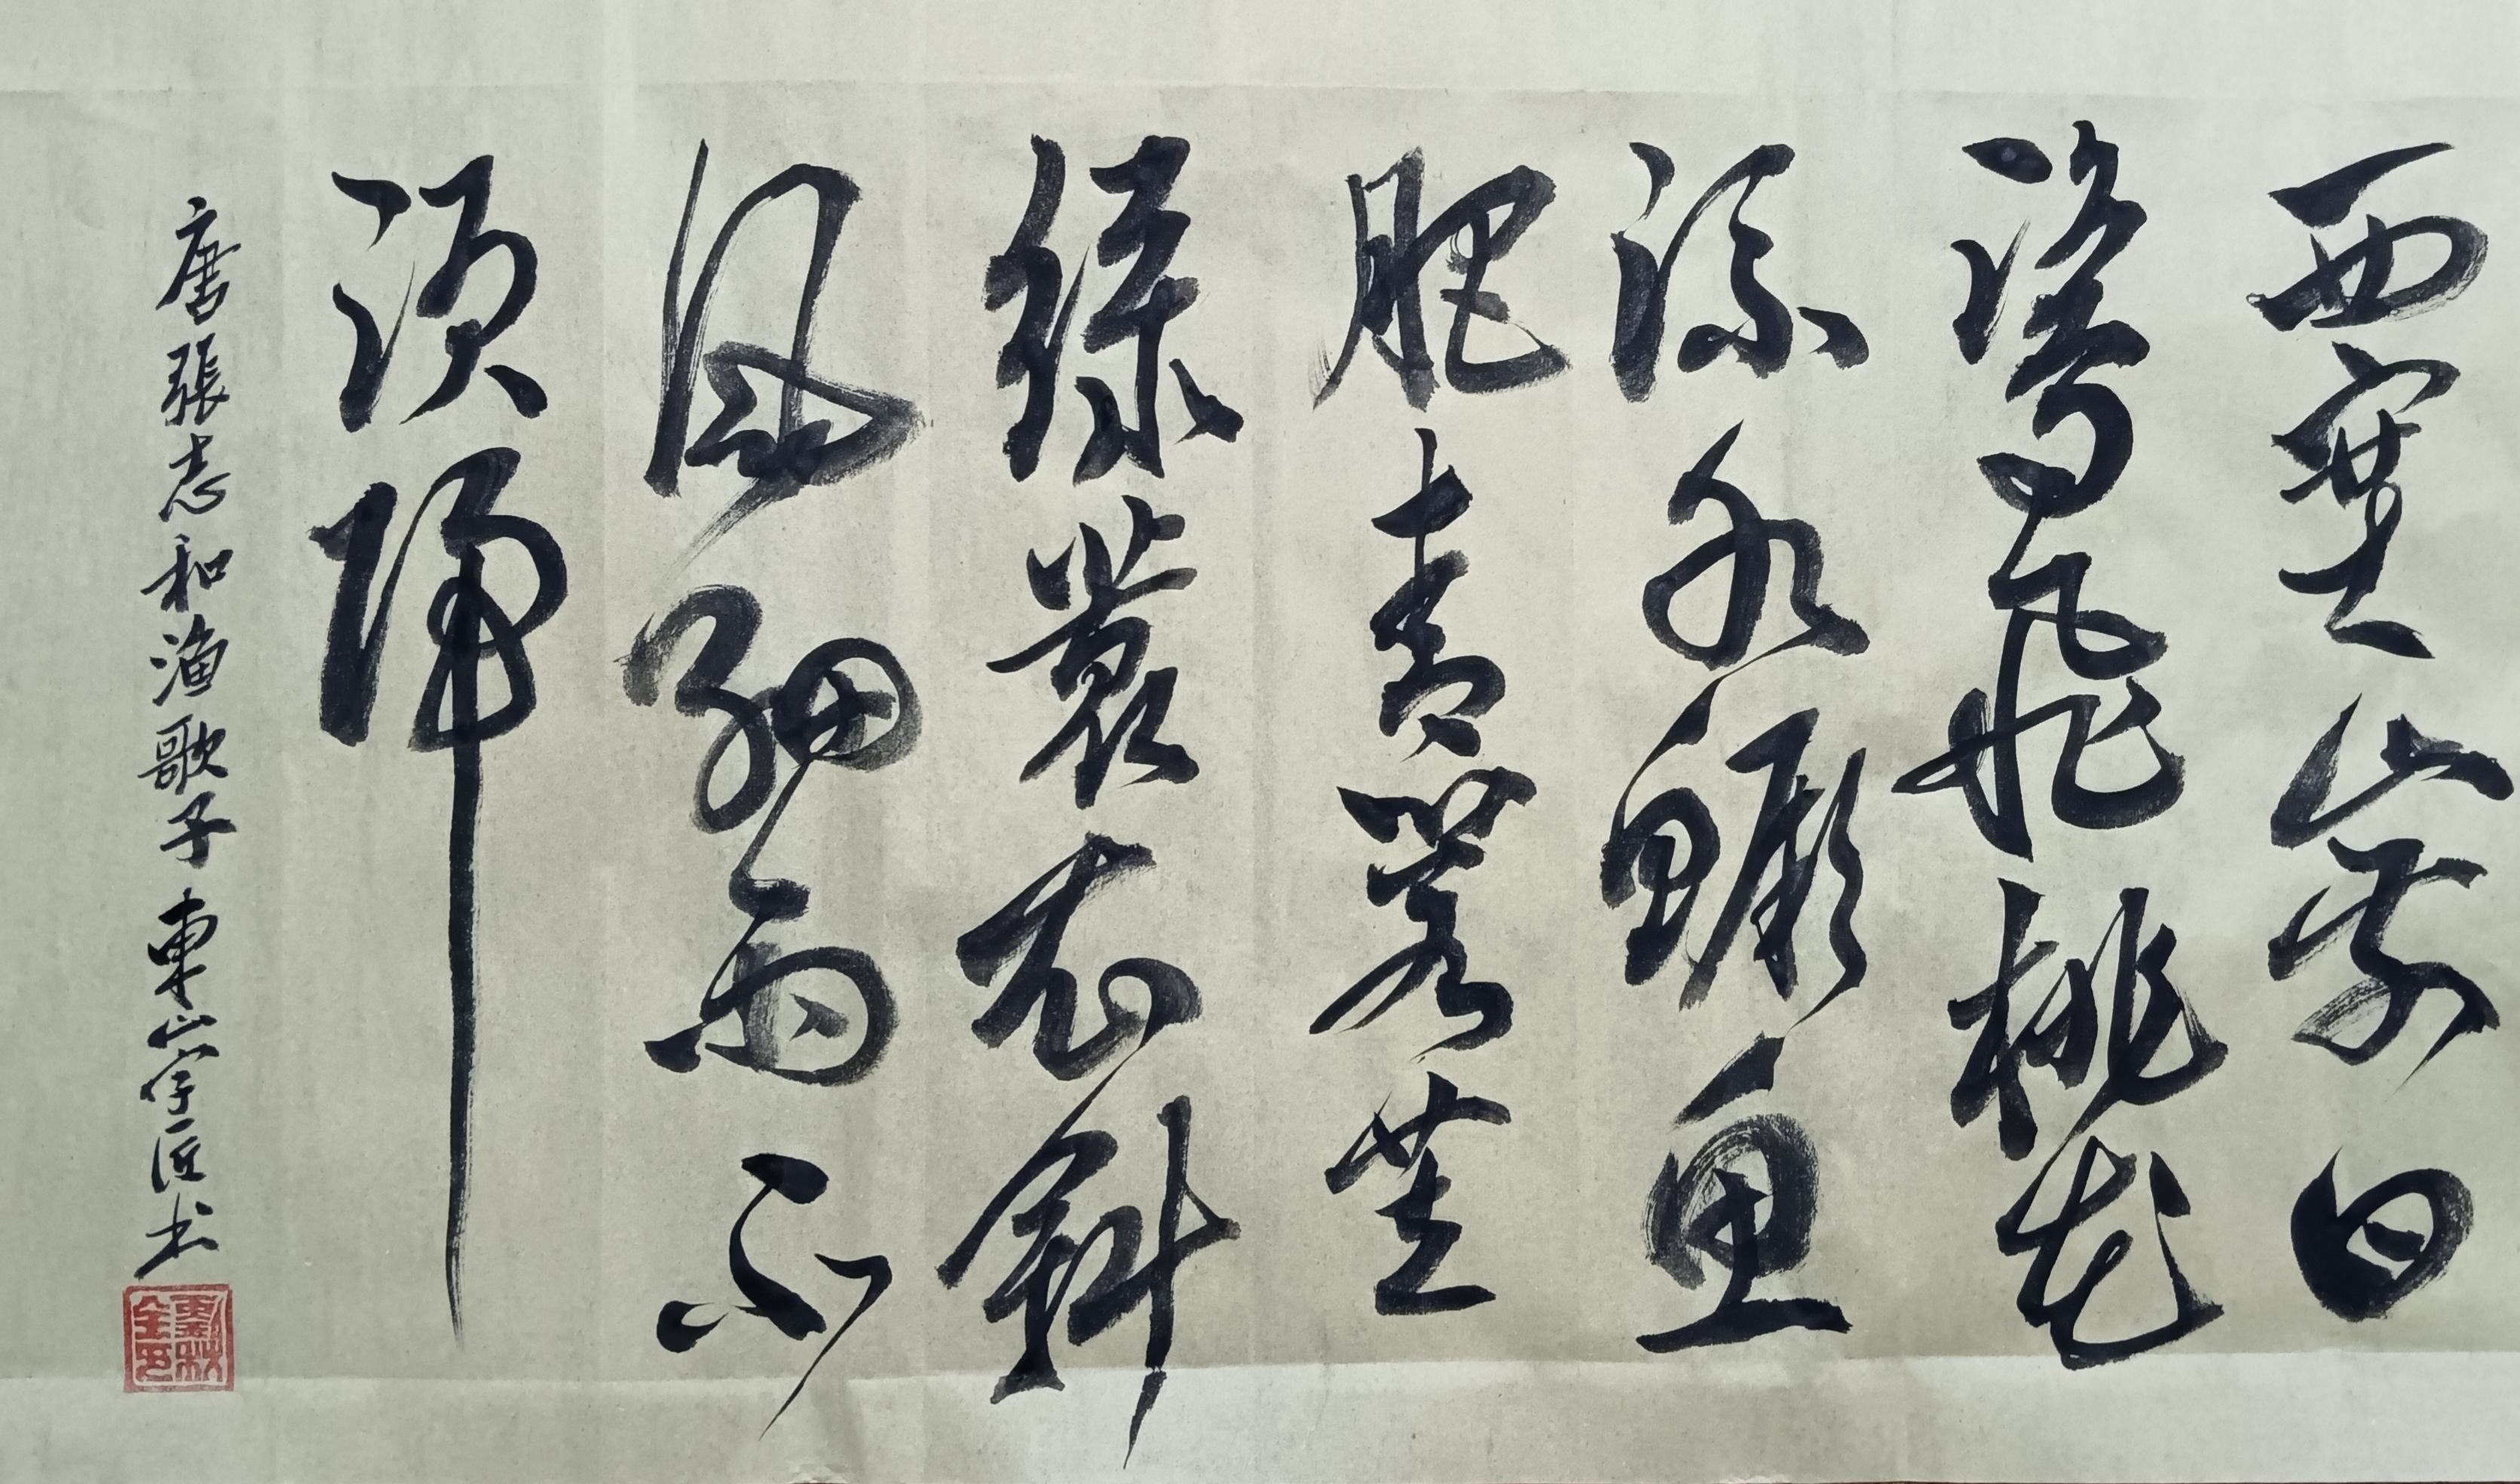 西塞山前白
鷺飛桃花
流水鱖魚
肥青箬笠
綠蓑衣斜
風細雨不
須歸
唐張志和漁歌子 東山字匠书